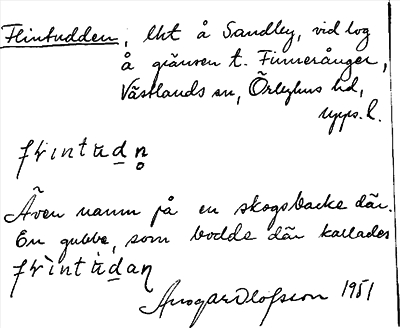 Flintudden, lht å Sandby, vid log
å gränsen t. Finnerånger,
Västlands sn, Örbyhus hd,
Upps. l.
Även namn på en skogsbacke där.
En gubbe, som bodde där kallades
Ansgar Olofsson 1951